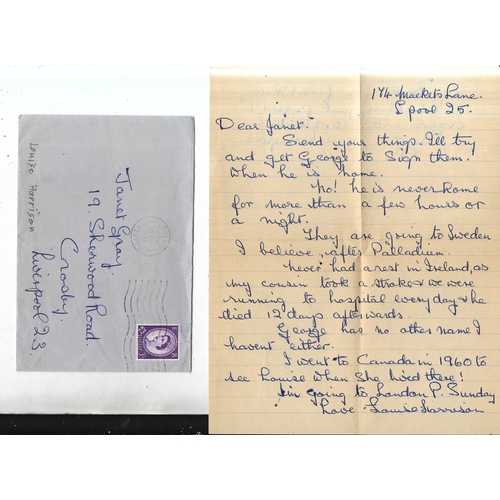 Louise Harrison
Janet Gray.
19. Sherwood Road
Crosby.
Liverpool 23,
174 Mackets Lane.
L'pool 25.
Dear Janet.
Send your things. I'll try
and get George to sign them.
When he is home.
No! he is never home
for more than a few hours or
a night.
They are going to Sweden
I believe, after Palladium.
Never had a rest in Ireland, as
my cousin took a stroke & we were
running to hospital every day & he
died 12 days afterwards.
George has no other name I
havent either.
I went to Canada in 1960 to
see Louise when she lived there!
I'm going to London P. Sunday
Love Louise Harrison